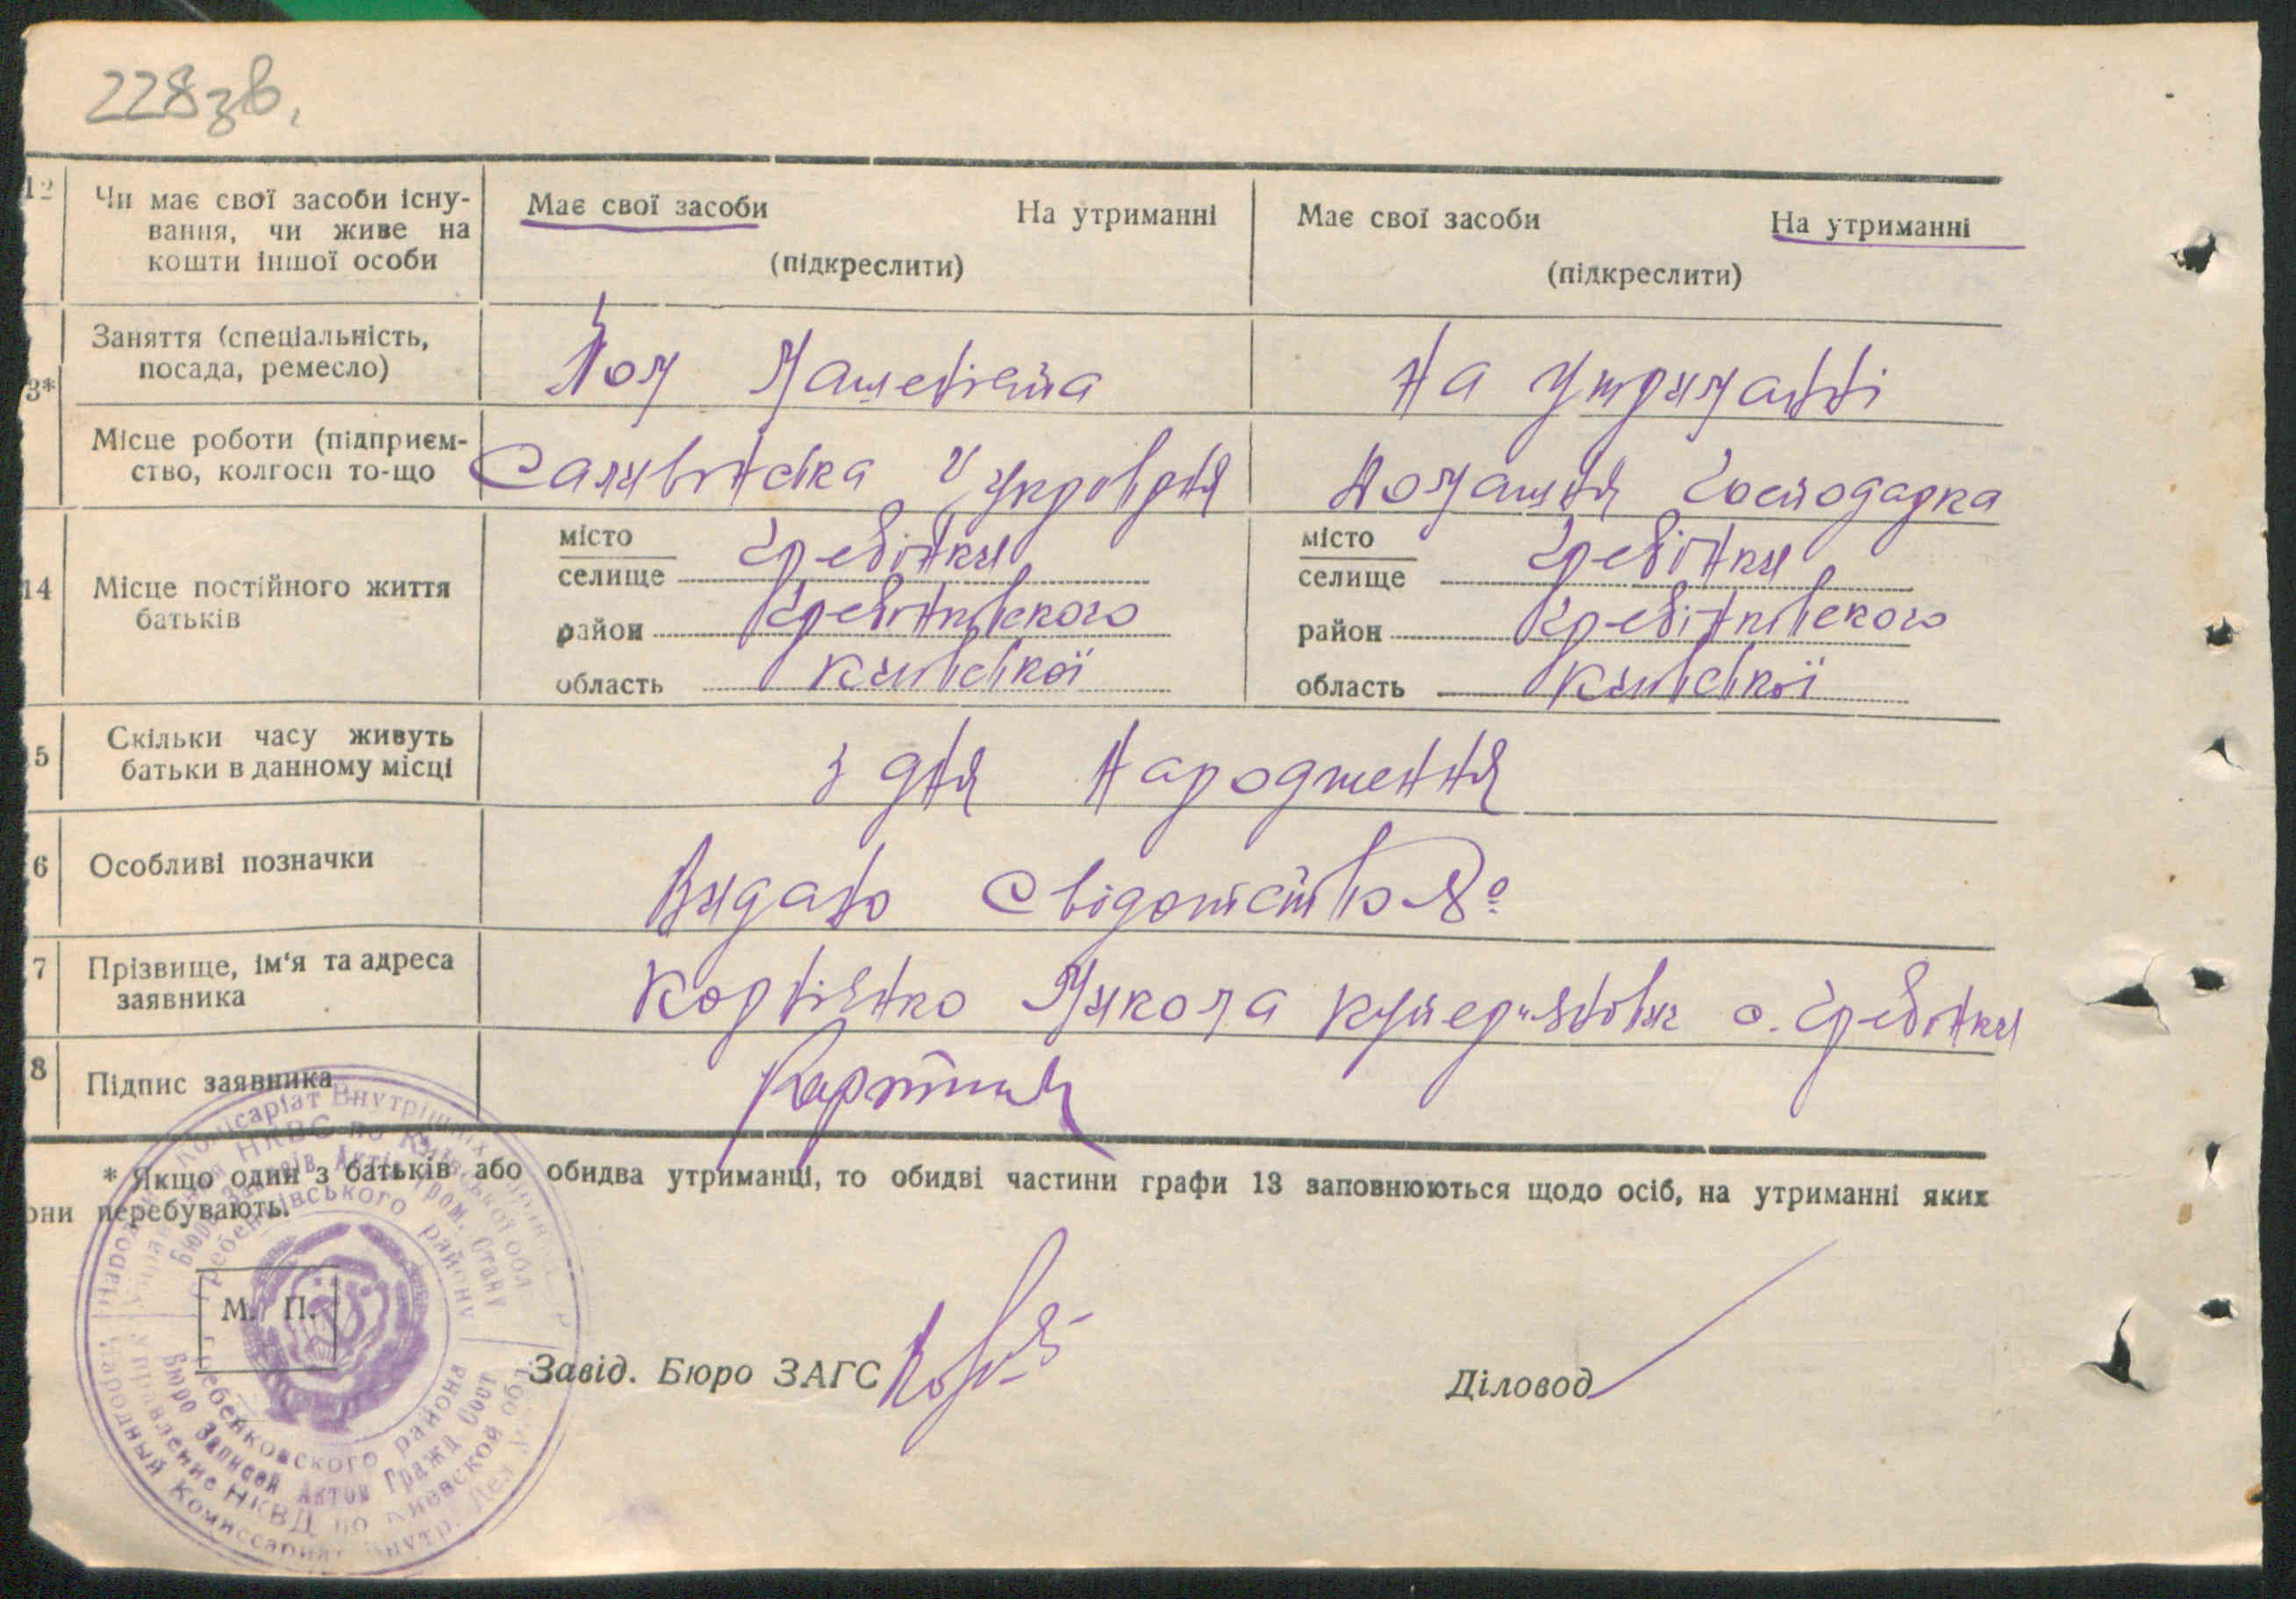 228зв.
12 Чи має свої засоби існу-
вання, чи живе на
кошти іншої особи
Має свої засоби На утриманні
(підкреслити)
Має свої засоби На утриманні
(підкреслити)
3* Заняття (спеціальність,
посада, ремесло)
Пом Машеніста
На Утриманні
Місце роботи (підприєм-
ство, колгосп то-що
Саливонська Цукроврня
Домашня Господарка
14 Місце постійного життя
батьків
місто
селище Гребінки
район Гребінківского
область Київської
місто
селище Гребінки
район Гребінківского
область Київської
5 Скільки часу живуть
батьки в данному місці
З дня Народження
6 Особливі позначки
Видано Свідотство №
7 Прізвище, ім'я та адреса
заявника
Микола с. Гребінки
8 Підпис заявника
* Якщо один з батьків або обидва утриманці, то обидві частини графи 13 заповнюються щодо осіб, на утриманні яких
они перебувають.
М. П.
Завід. Бюро ЗАГС
Діловод
Народний Комісаріат Внутрішніх
Управління НКВС по Київській обл
Бюро Записів Актів Гром. Стану
Гребенківського району
Гребенковского района
Бюро Записей Актов Гражд Сост
Управление НКВД по Киевской обл.
Народный Комиссариат Внутр. Дел